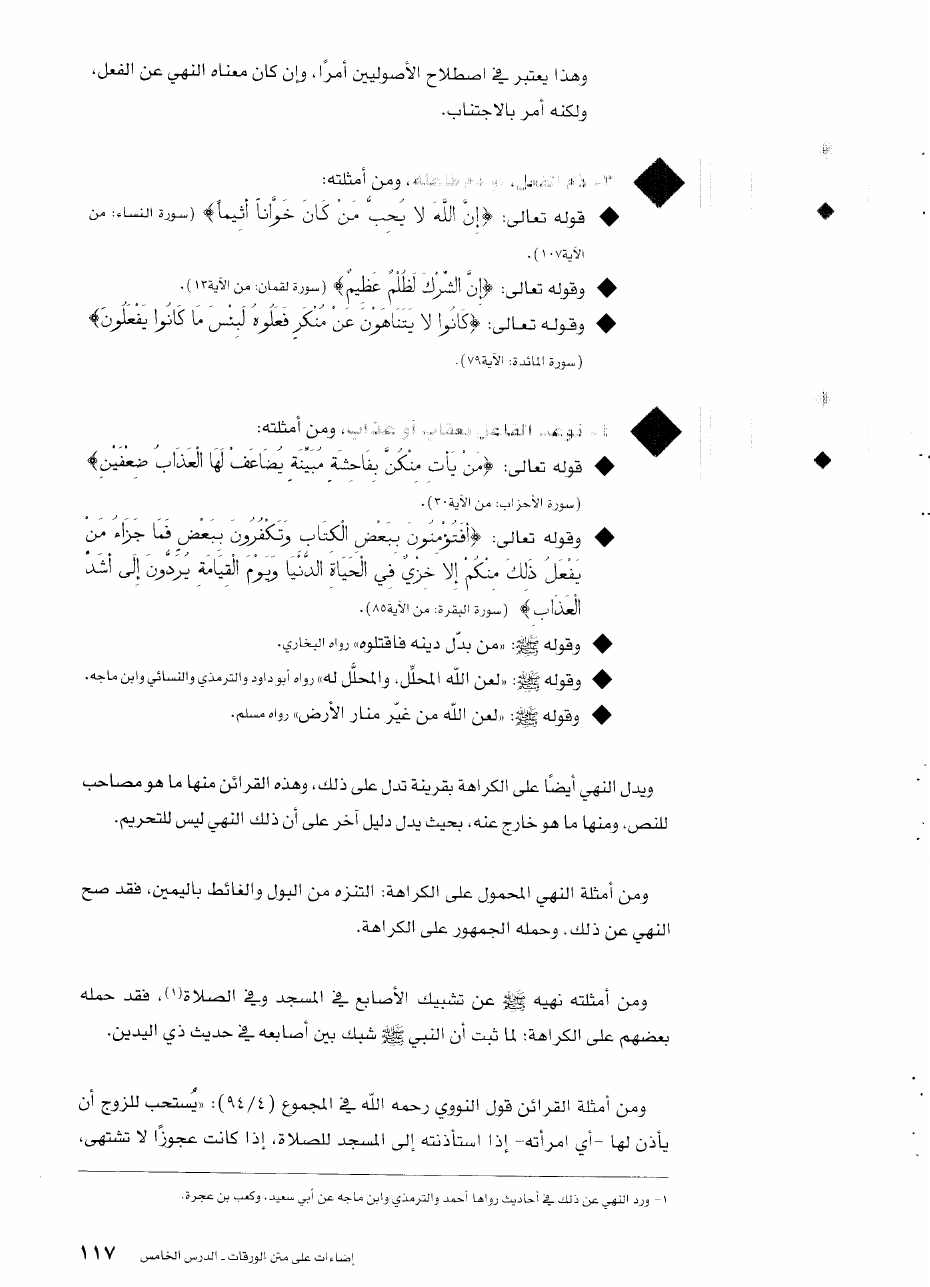 وهذا يعتبر في اصطلاح الأصوليين أمرًا، وإن كان معناه النهي عن الفعل،
ولكنه أمر بالاجتناب.
٣- ذم الفعل، أو ذم فاعله، ومن أمثلته:
◆ قوله تعالى: ﴿إِنَّ اللَّهَ لا يُحِبُّ مَنْ كَانَ خَوَّاناً أَثِيماً﴾ (سورة النساء: من
الآية١٠٧).
◆ وقوله تعالى: ﴿إِنَّ الشِّرْكَ لَظُلْمٌ عَظِيمٌ﴾ (سورة لقمان: من الآية١٣).
◆ وقوله تعالى: ﴿كَانُوا لا يَتَنَاهَوْنَ عَنْ مُنْكَرٍ فَعَلُوهُ لَبِئْسَ مَا كَانُوا يَفْعَلُونَ﴾
(سورة المائدة: الآية٧٩).
٤- توعد الفاعل بعقاب أو عذاب، ومن أمثلته:
◆ قوله تعالى: ﴿مَنْ يَأْتِ مِنْكُنَّ بِفَاحِشَةٍ مُبَيِّنَةٍ يُضَاعَفْ لَهَا الْعَذَابُ ضِعْفَيْنِ﴾
(سورة الأحزاب: من الآية٣٠).
◆ وقوله تعالى: ﴿أَفَتُؤْمِنُونَ بِبَعْضِ الْكِتَابِ وَتَكْفُرُونَ بِبَعْضٍ فَمَا جَزَاءُ مَنْ
يَفْعَلُ ذَلِكَ مِنْكُمْ إِلا خِزْيٌ فِي الْحَيَاةِ الدُّنْيَا وَيَوْمَ الْقِيَامَةِ يُرَدُّونَ إِلَى أَشَدِّ
الْعَذَابِ﴾ (سورة البقرة: من الآية٨٥).
◆ وقوله ﷺ: «من بدّل دينه فاقتلوه» رواه البخاري.
◆ وقوله ﷺ: «لعن اللّه المحلِّل، والمحلَّل له» رواه أبو داود والترمذي والنسائي وابن ماجه.
◆ وقوله ﷺ: «لعن اللّه من غيّر منار الأرض» رواه مسلم.
ويدل النهي أيضًا على الكراهة بقرينة تدل على ذلك، وهذه القرائن منها ما هو مصاحب
للنص، ومنها ما هو خارج عنه، بحيث يدل دليل آخر على أن ذلك النهي ليس للتحريم.
ومن أمثلة النهي المحمول على الكراهة: التنزه من البول والغائط باليمين، فقد صح
النهي عن ذلك، وحمله الجمهور على الكراهة.
ومن أمثلته نهيه ﷺ عن تشبيك الأصابع في المسجد وفي الصلاة(١)، فقد حمله
بعضهم على الكراهة: لما ثبت أن النبي ﷺ شبك بين أصابعه في حديث ذي اليدين.
ومن أمثلة القرائن قول النووي رحمه اللّه في المجموع (٩٤/٤): «يُستحب للزوج أن
يأذن لها -أي امرأته- إذا استأذنته إلى المسجد للصلاة، إذا كانت عجوزًا لا تشتهى،
١- ورد النهي عن ذلك في أحاديث رواها أحمد والترمذي وابن ماجه عن أبي سعيد، وكعب بن عجرة.
إضاءات على متن الورقات ـ الدرس الخامس ١١٧